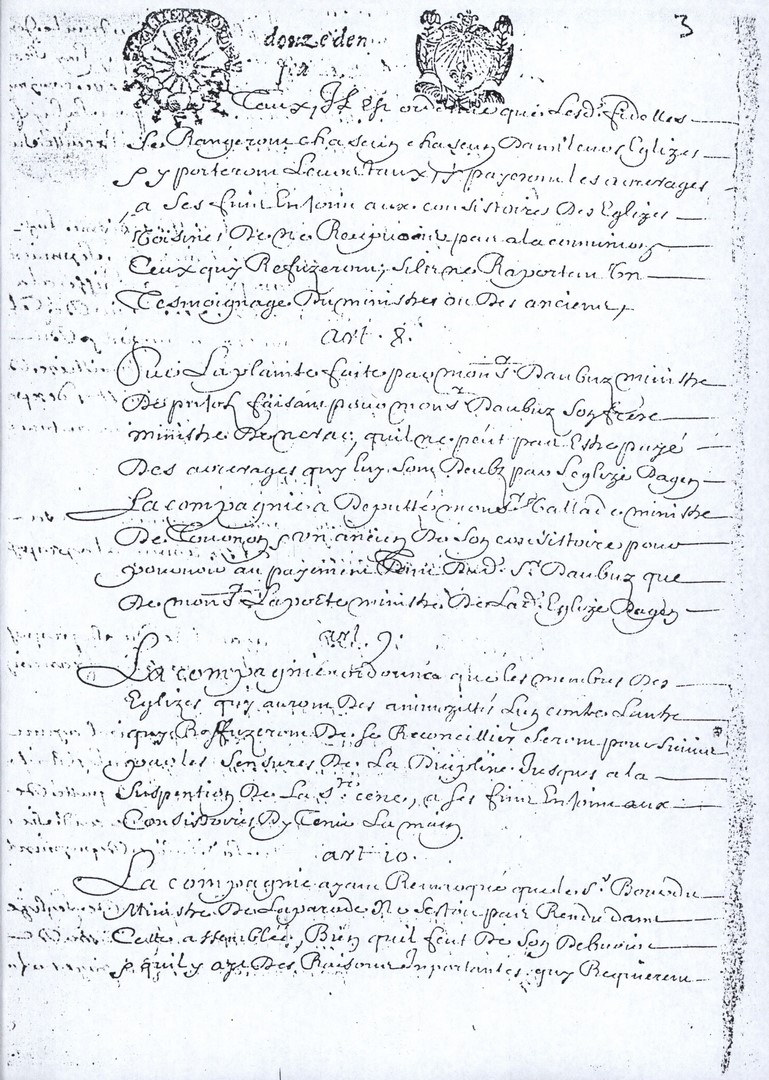 3
douze den
Taux, Il Est ordonné que Lesd.s fidelles
Se Rangeront chascun chascun Dans leurs Eglizes
& y porteront Leurs taux & payeront les arrerages
a Ses fins Enjoint aux consistoires Des Eglizes
Voisines De ne Recepvoir pas a la communion
Ceux quy Refuzeront, Silz ne Raportent Un
Tesmoignage Du ministre ou Des anciens,
art. 8.
Sur La plainte faite par monsr. Daubuz ministre
De faisant pour monsr. Daubuz Son frère
ministre De nerac, quil ne peut pas Estre payé
Des arrerages quy luy Sont Deubz par Leglize Dagen
La compagnie a Deputté monsr. Vallade ministre
De Tournon & un ancien De Son consistoire pour
pourvoir au payement tant Dud. Sr. Daubuz que
De monsr. Laporte ministre De Lad. Eglize Dagen
art. 9.
La compagnie ordonne que les membres Des
Eglizes quy auront Des animozittés Lun contre Lautre
quy Reffuzeront De Se Reconcillier Seront poursuivis
par les Sensures De La Dicipline Jusques a la
Suspention De La Ste. cène, a Ses fins Enjoint aux
Consistoires Dy Tenir La main
art 10.
La compagnie ayant Remarqué que le Sr.
Ministre De Laparade Ne Sestoit pas Rendu dans
Cette assemblée, Bien quil feut De Son Debvoir
& quil y aye Des Raisons Importantes quy Requierent